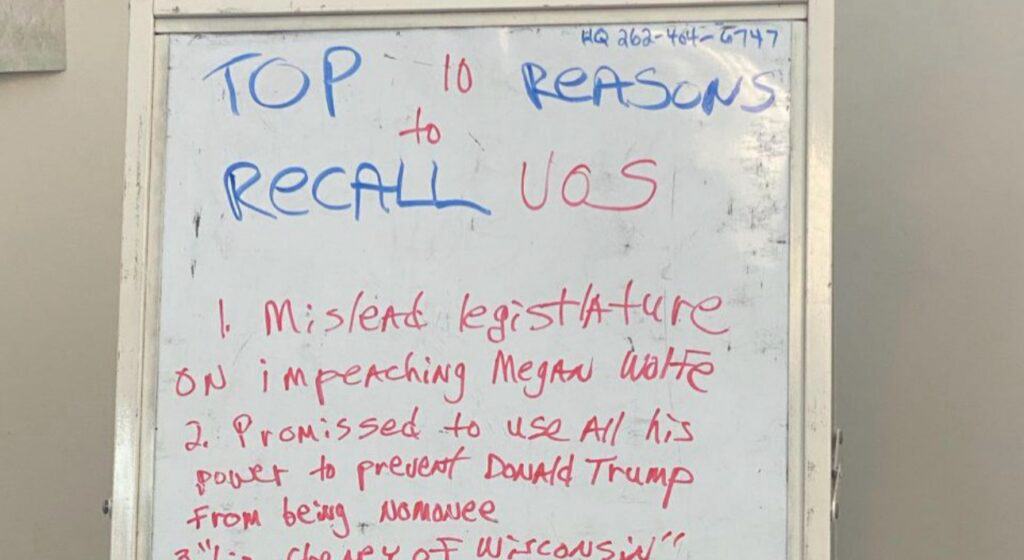 HQ 262-464-6747
TOP 10 REASONS
to
RECALL VOS
1. Mislead legistlature
ON impeaching Megan Wolfe
2. Promissed to use All his
power to prevent Donald Trump
From being Nomonee
3 "Liz Cheney of Wisconsin"